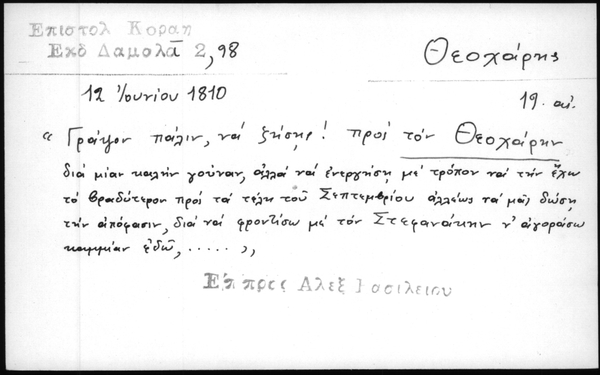 Επιστολ Κοραη
Εκδ Δαμολᾶ 2, 98
Θεοχάρης
12 Ἰουνίου 1810
19. αἰ.
« Γράψον πάλιν, νά ζήσῃς! πρός τόν Θεοχάρην
διά μίαν καλήν γούναν, ἀλλά νά ἐνεργήσῃ μέ τρόπον νά τήν ἔχω
τό βραδύτερον πρός τά τέλη τοῦ Σεπτεμβρίου ἀλλέως νά μᾶς δώσῃ
τήν ἀπόφασιν, διά νά φροντίσω μέ τόν Στεφανάκην ν' ἀγοράσω
καμμίαν ἐδῶ, ..... »
Επ προς Αλεξ Βασιλειου